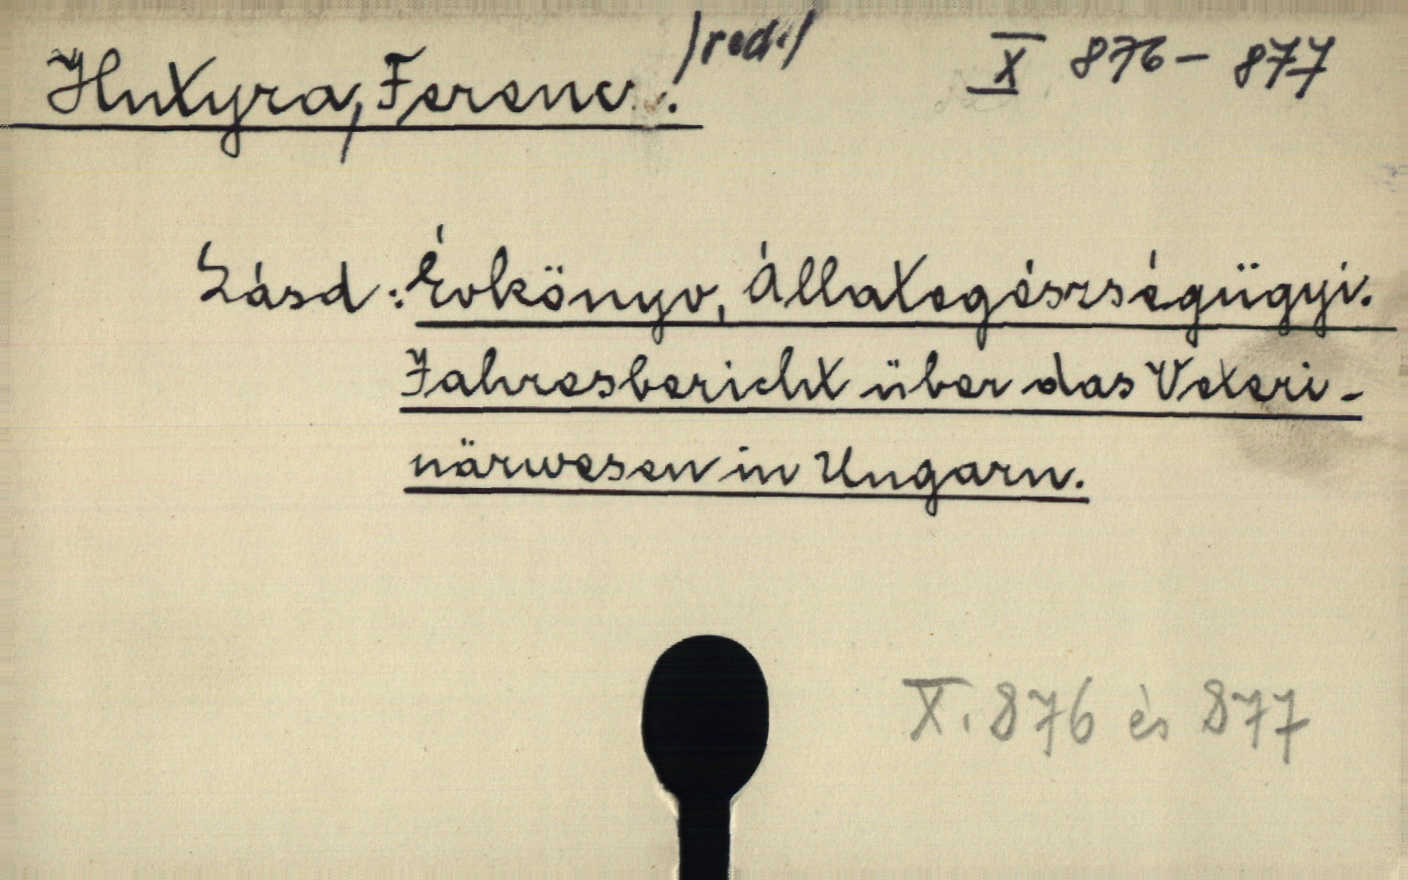 Hutyra, Ferenc. /red./ X 876 - 877
Lásd: Évkönyv, Állategészségügyi.
Jahresbericht über das Veteri-
närwesen in Ungarn.
X. 876 és 877